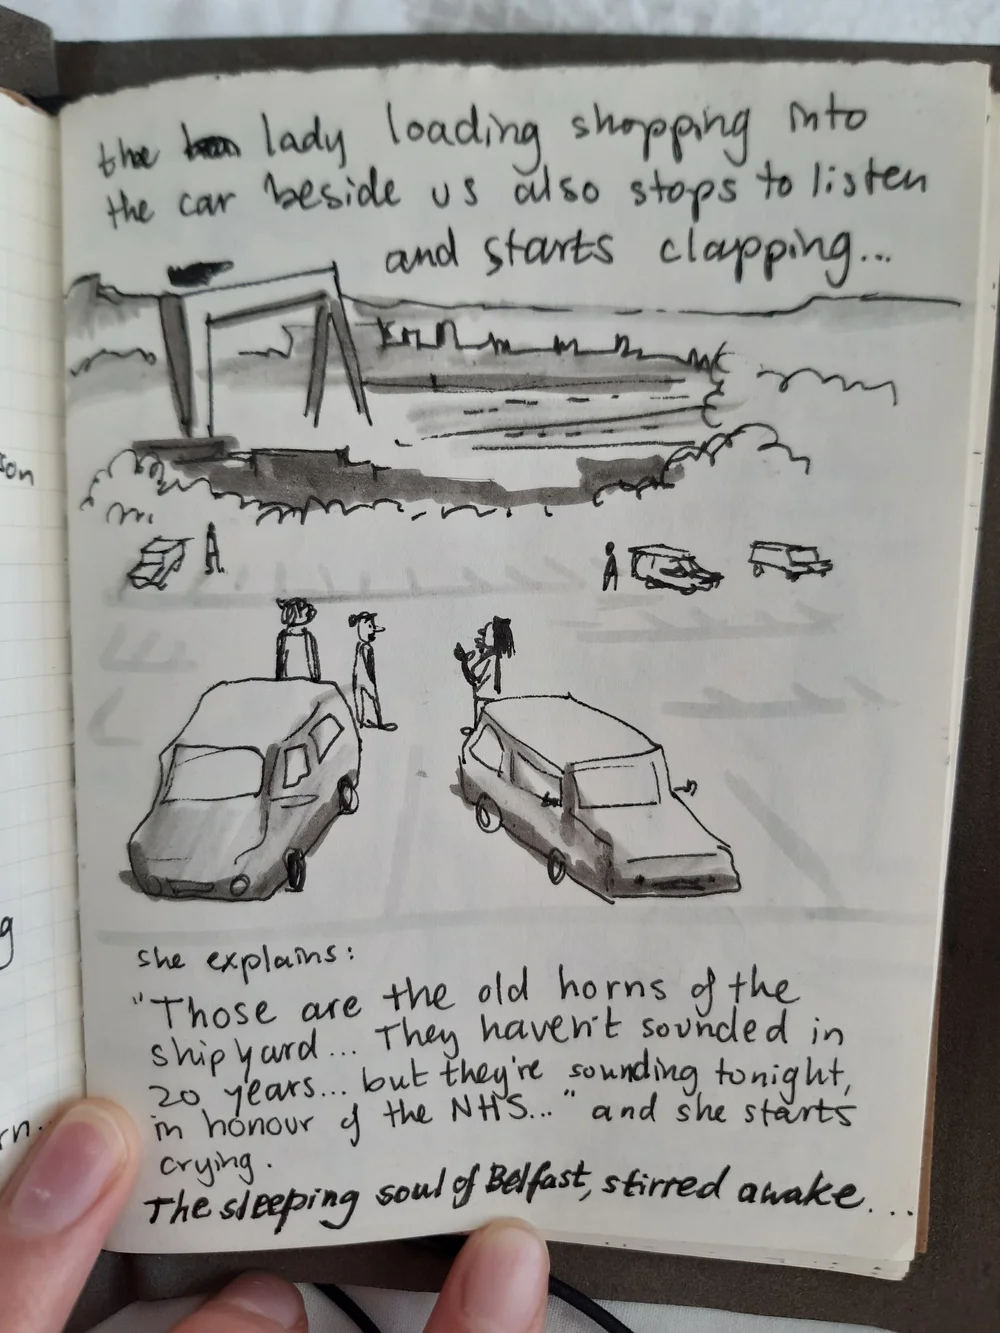 the lady loading shopping into
the car beside us also stops to listen
and starts clapping...
son
g
rn..
she explains:
"Those are the old horns of the
shipyard... They haven't sounded in
20 years... but they're sounding tonight,
in honour of the NHS..." and she starts
crying.
The sleeping soul of Belfast, stirred awake...